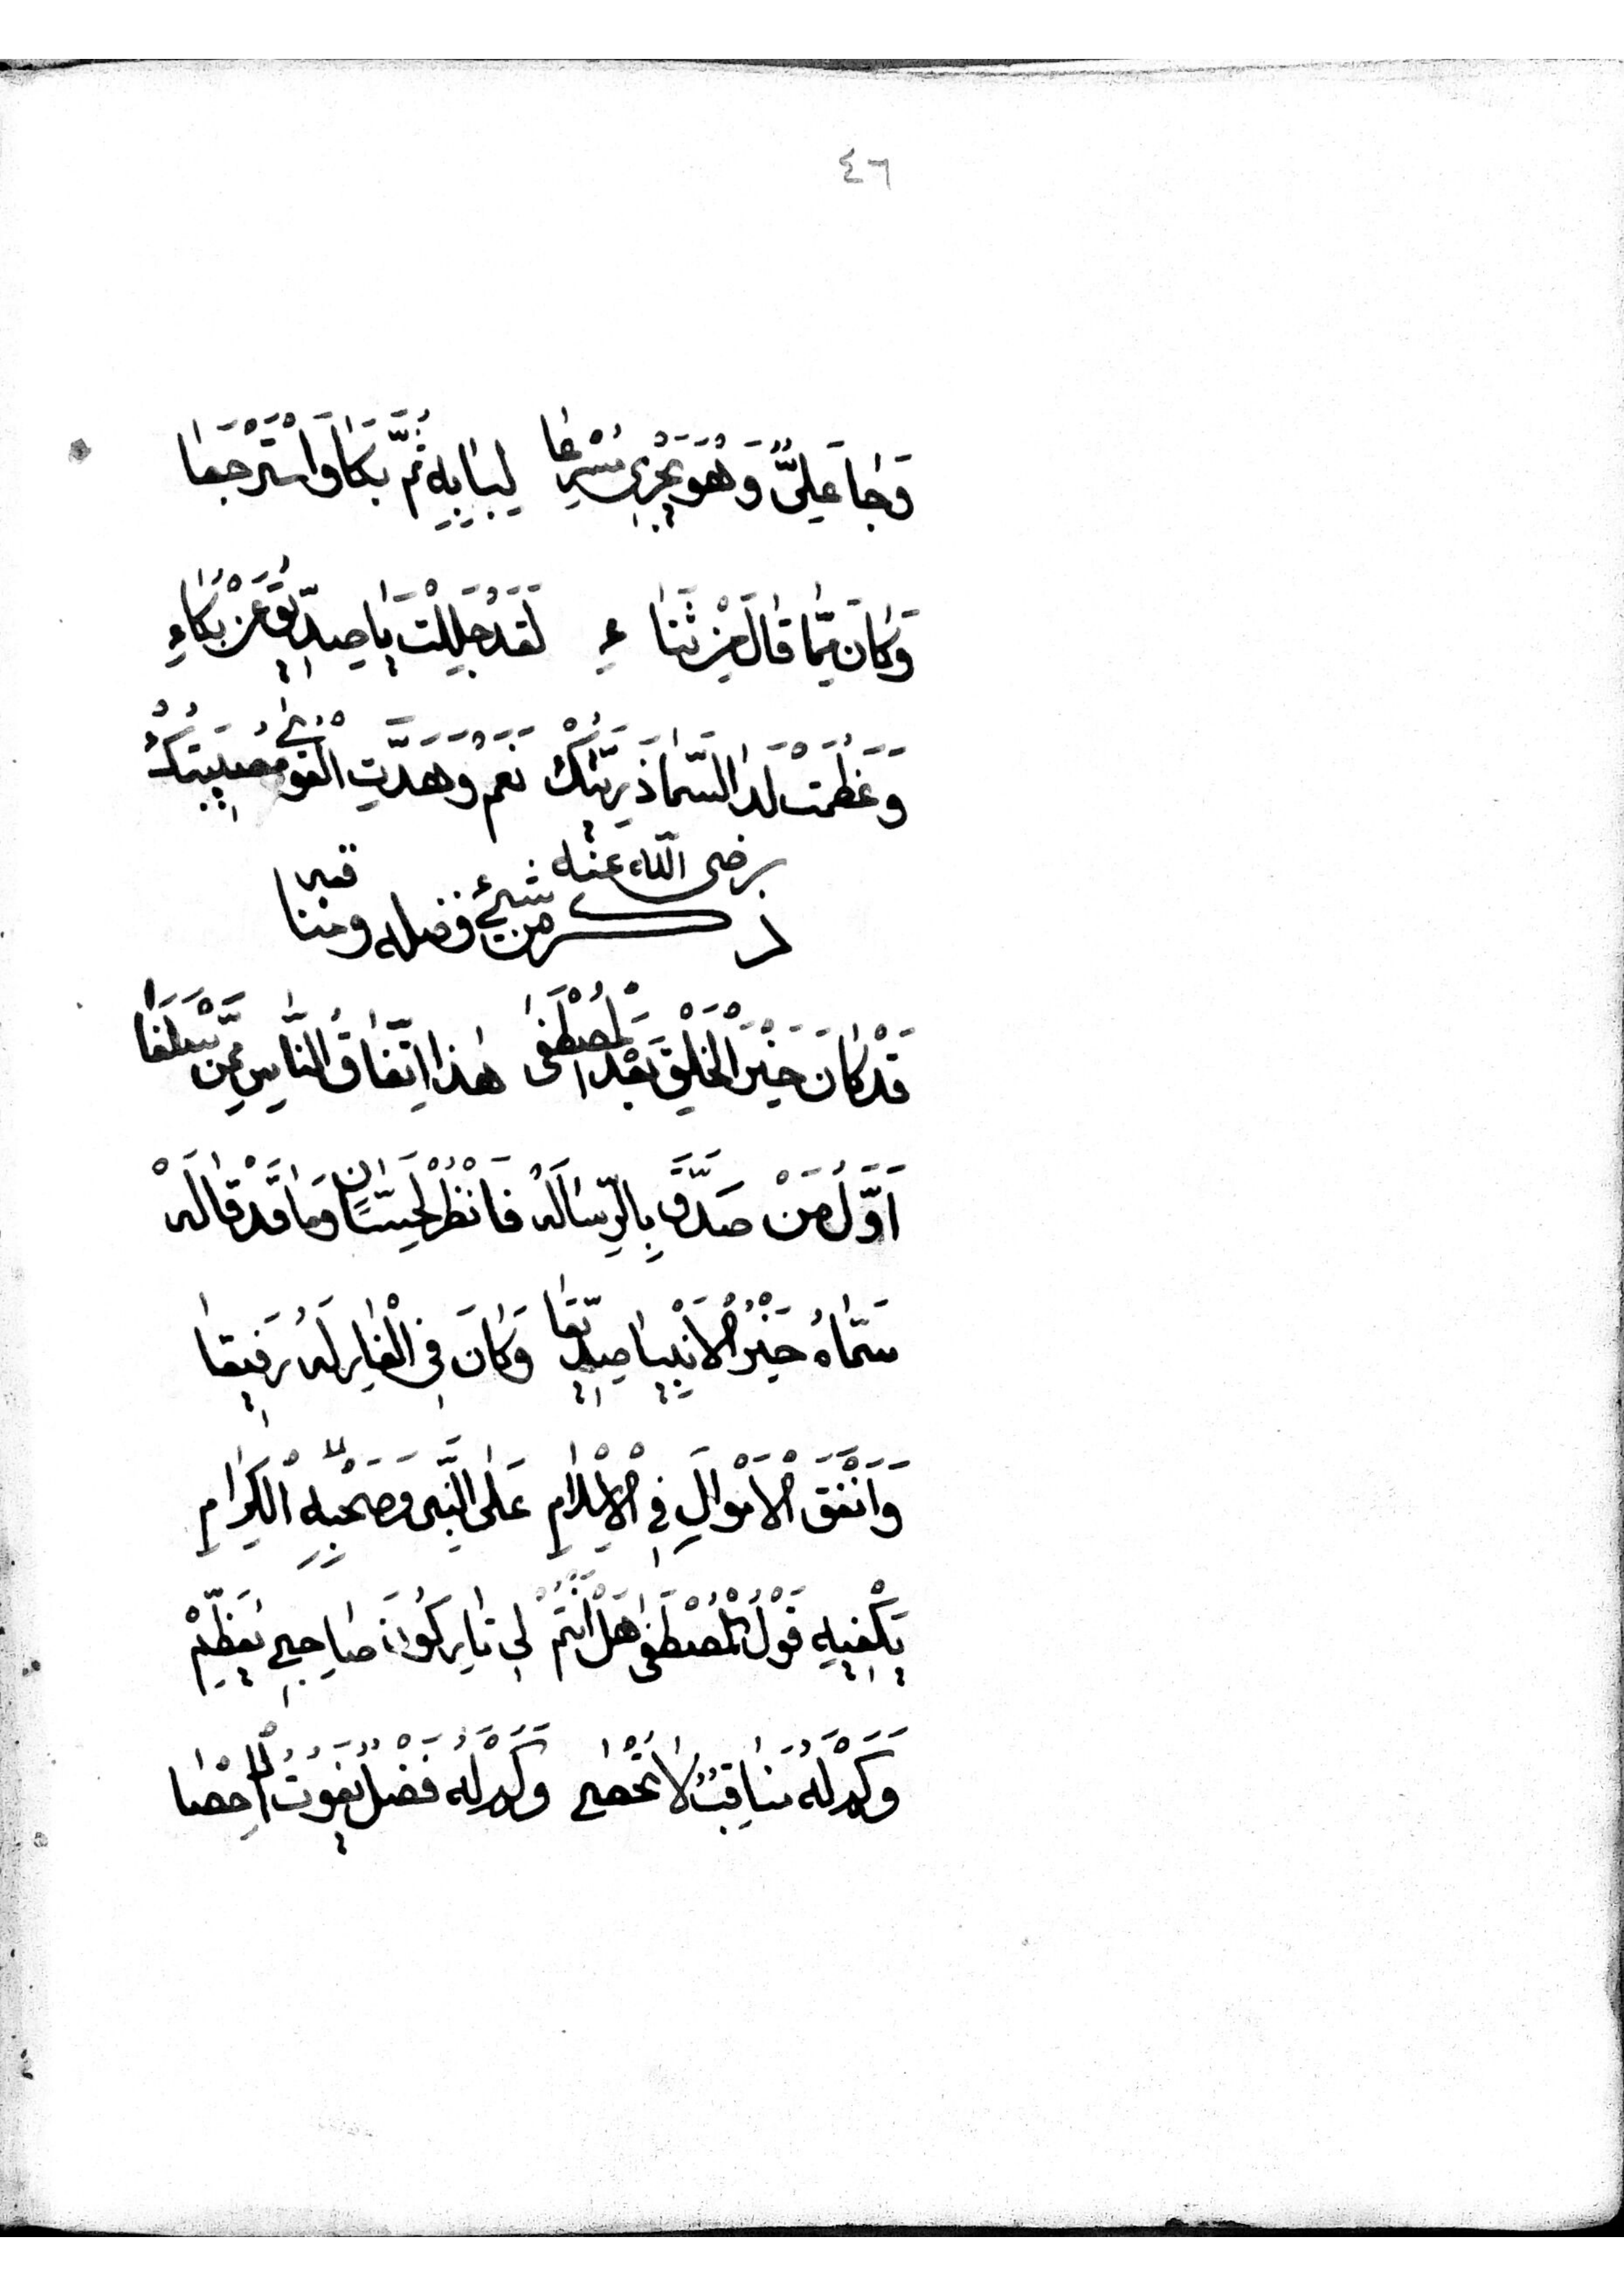 ٤٦
وَجَا عَلِيٌّ وَهُوَ يَجْرِي مُسْرِعَا لِبَابِهِ ثُمَّ بَكَا وَاسْتَرْجَعَا
وَكَانَ مِمَّا قَالَ مِنْ ثَنَاءِ لَقَدْ جَلِلْتَ يَا صِدِّيقُ عَنْ بُكَاءِ
وَعَظُمَتْ لَدَا السَّمَا رَزِيَّتُكْ نَعَمْ وَهَدَّتِ الْقُوَى مُصِيبَتُكْ
ذكر من شيئ فضله ومناقبه رضى الله عنه
قَدْ كَانَ خَيْرَ الْخَلْقِ بَعْدَ الْمُصْطَفَى هٰذَا اِتِّفَاقُ النَّاسِ مِمَّنْ سَلَفَا
اَوَّلُ مَنْ صَدَّقَ بِالرِّسَالَهْ فَانْظُرْ لِحَسَّانٍ وَمَا قَدْ قَالَهْ
سَمَّاهُ خَيْرُ الْاَنْبِيَا صِدِّيقَا وَكَانَ فِى الْغَارِ لَهُ رَفِيقَا
وَاَنْفَقَ الْاَمْوَالَ فِى الْاِسْلَامِ عَلَى النَّبِى وَصَحْبِهِ الْكِرَامِ
يَكْفِيهِ قَوْلُ الْمُصْطَفَى هَلْ اَنْتُمُ لِى تَارِكُونَ صَاحِبِى يُعَظِّمْ
وَكَمْ لَهُ مَنَاقِبٌ لَا تُحْصَى وَكَمْ لَهُ فَضْلٌ يَفُوتُ الْاِحْصَا